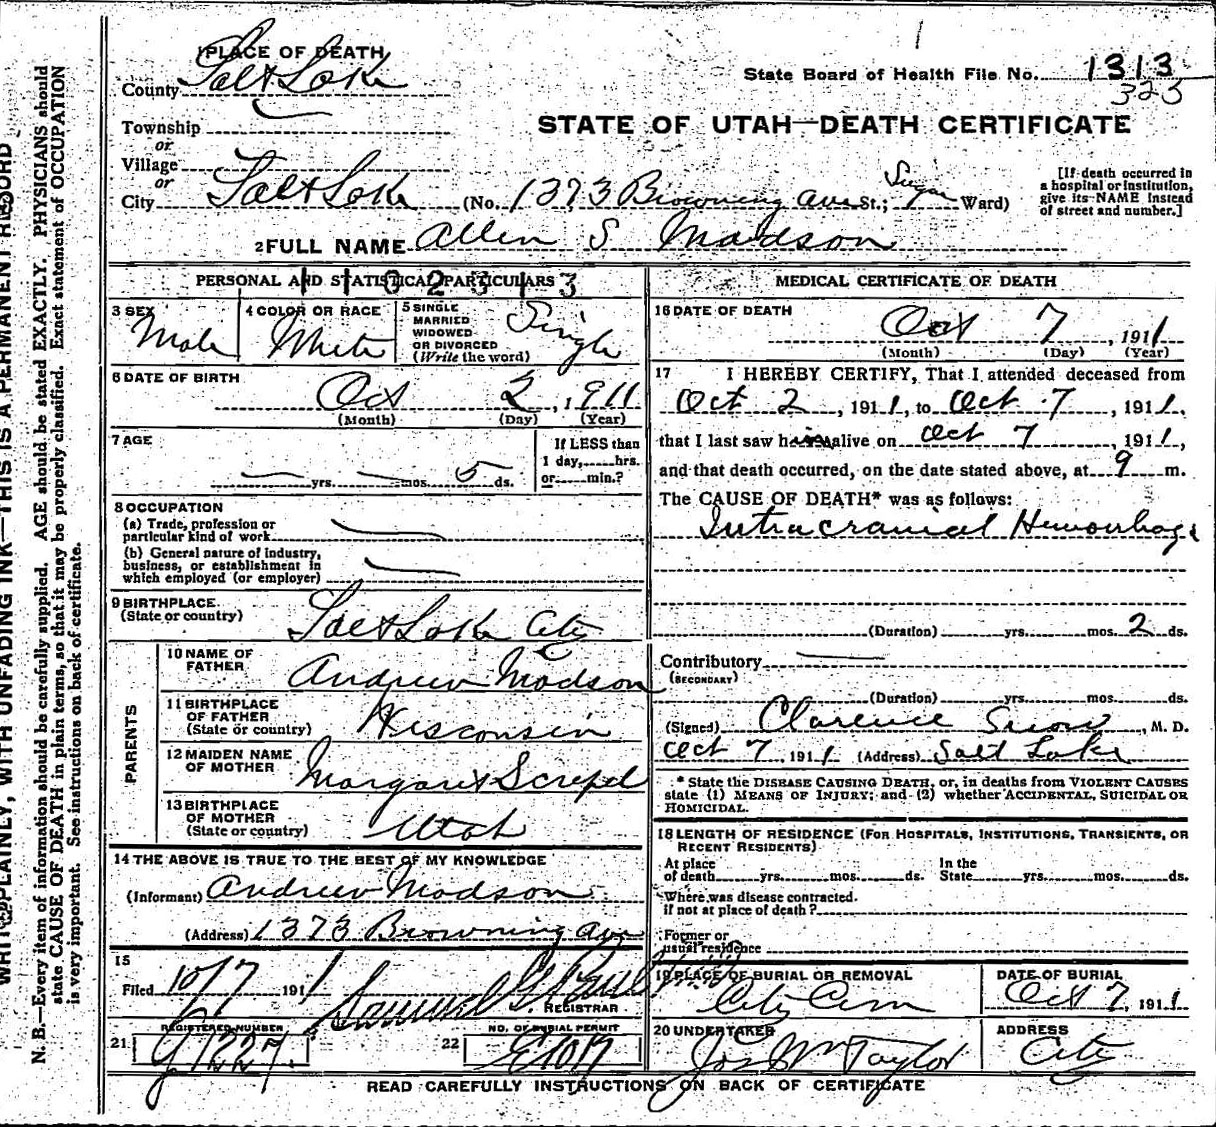 PLACE OF DEATH
County Salt Lake
State Board of Health File No. 1313
325
STATE OF UTAH—DEATH CERTIFICATE
Township
or
Village
or
City Salt Lake (No. 1373 Browning Ave St.; Sugar Ward)
[If death occurred in
a hospital or institution,
give its NAME instead
of street and number.]
2 FULL NAME Allen S Madson
PERSONAL AND STATISTICAL PARTICULARS
3 SEX Male
4 COLOR OR RACE White
5 SINGLE
MARRIED
WIDOWED
OR DIVORCED
(Write the word) Single
6 DATE OF BIRTH
Oct 2, 1911
(Month) (Day) (Year)
7 AGE
yrs. mos. 5 ds.
If LESS than
1 day, hrs.
or min.?
8 OCCUPATION
(a) Trade, profession or
particular kind of work
(b) General nature of industry,
business, or establishment in
which employed (or employer)
9 BIRTHPLACE
(State or country) Salt Lake City
PARENTS
10 NAME OF
FATHER Andrew Madson
11 BIRTHPLACE
OF FATHER
(State or country) Wisconsin
12 MAIDEN NAME
OF MOTHER Margaret
13 BIRTHPLACE
OF MOTHER
(State or country) Utah
14 THE ABOVE IS TRUE TO THE BEST OF MY KNOWLEDGE
(Informant) Andrew Madson
(Address) 1373 Browning Ave
15
Filed 10/7 1911 Samuel G. Paul
REGISTRAR
REGISTERED NUMBER
21 G1227
NO. OF BURIAL PERMIT
22
MEDICAL CERTIFICATE OF DEATH
16 DATE OF DEATH
Oct 7, 1911
(Month) (Day) (Year)
17 I HEREBY CERTIFY, That I attended deceased from
Oct 2, 1911, to Oct 7, 1911,
that I last saw him alive on Oct 7, 1911,
and that death occurred, on the date stated above, at 9 m.
The CAUSE OF DEATH* was as follows:
Intracranial Hemorrhage
(Duration) yrs. mos. 2 ds.
Contributory
(SECONDARY)
(Duration) yrs. mos. ds.
(Signed) Clarence Snow, M. D.
Oct 7, 1911 (Address) Salt Lake
* State the DISEASE CAUSING DEATH, or, in deaths from VIOLENT CAUSES
state (1) MEANS OF INJURY; and (2) whether ACCIDENTAL, SUICIDAL OR
HOMICIDAL.
18 LENGTH OF RESIDENCE (FOR HOSPITALS, INSTITUTIONS, TRANSIENTS, OR
RECENT RESIDENTS)
At place
of death yrs. mos. ds.
In the
State yrs. mos. ds.
Where was disease contracted.
if not at place of death?
Former or
usual residence
19 PLACE OF BURIAL OR REMOVAL
City Cem
DATE OF BURIAL
Oct 7, 1911
20 UNDERTAKER
Jos Wm Taylor
ADDRESS
City
READ CAREFULLY INSTRUCTIONS ON BACK OF CERTIFICATE
WRITE PLAINLY, WITH UNFADING INK—THIS IS A PERMANENT RECORD
N. B.—Every item of information should be carefully supplied. AGE should be stated EXACTLY. PHYSICIANS should
state CAUSE OF DEATH in plain terms, so that it may be properly classified. Exact statement of OCCUPATION
is very important. See instructions on back of certificate.